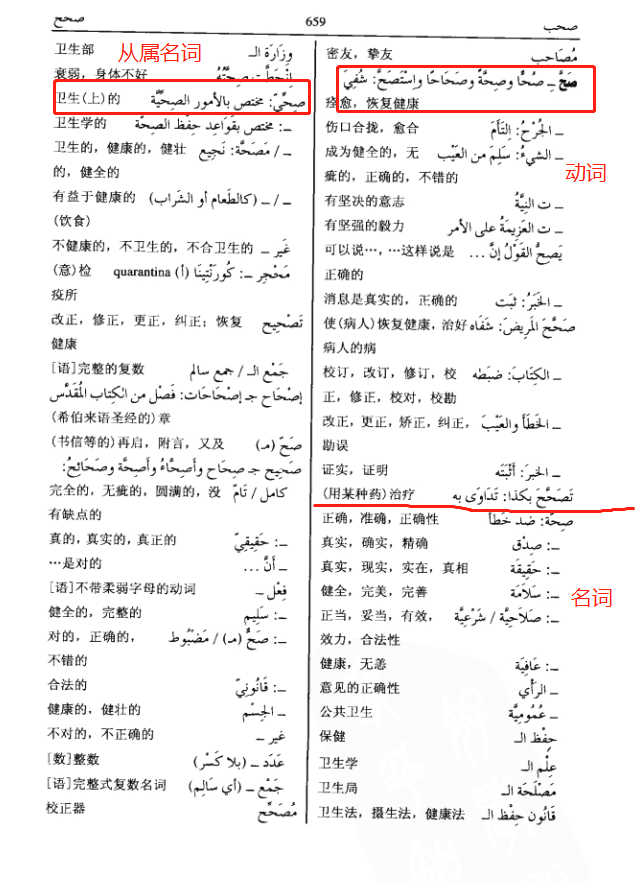 صحب 659 صحح
مُصَاحِب 密友，挚友
صَحَّ ــِ صُحًّا وصِحَّةً وصَحَاحًا واِسْتَصَحَّ: شُفِيَ
痊愈，恢复健康
ــ الجُرْحُ: اِلْتَأَمَ 伤口合拢，愈合
动词
ــ الشيءُ: سَلِمَ من العَيْب 成为健全的，无
疵的，正确的，不错的
ــ ت النِيَّةُ 有坚决的意志
ــ ت العَزِيمَةُ على الأمر 有坚强的毅力
يَصِحُّ القَوْلُ إنَّ ... 可以说…，…这样说是
正确的
ــ الخَبَرُ: ثبَت 消息是真实的，正确的
صَحَّحَ المَرِيضَ: شَفَاه 使(病人)恢复健康，治好
病人的病
ــ الكِتَابَ: ضبَطه 校订，改订，修订，校
正，修正，校对，校勘
ــ الخَطَأَ والعَيْبَ 改正，更正，矫正，纠正，
勘误
ــ الخبرَ: أَثْبَتَه 证实，证明
تَصَحَّحَ بكذا: تَدَاوَى به (用某种药)治疗
صِحَّة: ضد خَطَأ 正确，准确，正确性
ــ: صِدْق 真实，确实，精确
ــ: حَقِيقَة 真实，现实，实在，真相
ــ: سَلَامَة 健全，完美，完善
名词
ــ: صَلَاحِيَّة / شَرْعِيَّة 正当，妥当，有效，
效力，合法性
ــ: عَافِيَة 健康，无恙
ــ الرَأْي 意见的正确性
ــ عُمُومِيَّة 公共卫生
حِفْظ الـ 保健
عِلْم الـ 卫生学
مَصْلَحَة الـ 卫生局
قَانُون حِفْظ الـ 卫生法，摄生法，健康法
وِزَارة الـ 卫生部
从属名词
اِنْحَطَّت صِحَّتُهُ 衰弱，身体不好
صِحِّيّ: مختص بالأمور الصِحِّيَّة 卫生(上)的
ــ: مختص بقَوَاعِد حِفْظ الصِحَّة 卫生学的
ــ / مَصَحَّة: نَجِيع 卫生的，健康的，健壮
的，健全的
ــ / ــ (كالطَعام أو الشَراب) 有益于健康的
(饮食)
غَير ــ 不健康的，不卫生的，不合卫生的
مَحْجِر ــ: كُورَنْتِينَا (أ) quarantina (意)检
疫所
تَصْحِيح 改正，修正，更正，纠正；恢复
健康
جَمْع الـ / جمع سالم [语]完整的复数
إصْحَاح جـ إصْحَاحَات: فَصْل من الكِتاب المُقَدَّس
(希伯来语圣经的)章
صَحّ (مـ) (书信等的)再启，附言，又及
صَحِيح جـ صِحَاح وأَصِحَّاءُ وأَصِحَّة وصَحَائِحُ:
كامل / تَامّ 完全的，无疵的，圆满的，没
有缺点的
ــ: حَقِيقِيّ 真的，真实的，真正的
ــ أَنَّ ... …是对的
فِعْل ــ [语]不带柔弱字母的动词
ــ: سَلِيم 健全的，完整的
ــ: صَحّ (مـ) / مَضْبُوط 对的，正确的，
不错的
ــ: قَانُونِيّ 合法的
ــ الجِسْم 健康的，健壮的
غير ــ 不对的，不正确的
عَدَد ــ (بلا كَسْر) [数]整数
جَمْع ــ (أي سَالِم) [语]完整式复数名词
مُصَحِّح 校正器